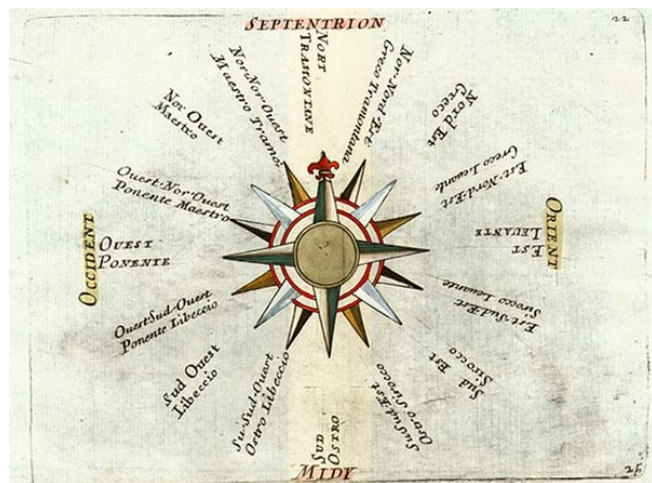 22
SEPTENTRION
NORT
TRAMONTANE
Nor-Nord Est
Greco Tramontana
Nord Est
Greco
Est-Nord-Est
Greco Levante
ORIENT
EST
LEUANTE
Est-Sud-Est
Sirocco Levante
Sud Est
Sirocco
Sud Sud Est
Ostro Sirocco
SUD
OSTRO
MIDY
Su-Sud-Ouest
Ostro Libeccio
Sud Ouest
Libeccio
Ouest Sud-Ouest
Ponente Libeccio
OCCIDENT
OUEST
PONENTE
Ouest-Nor-Ouest
Ponente Maestro
Nor Ouest
Maestro
Nor-Nor-Ouest
Maestro Tramon